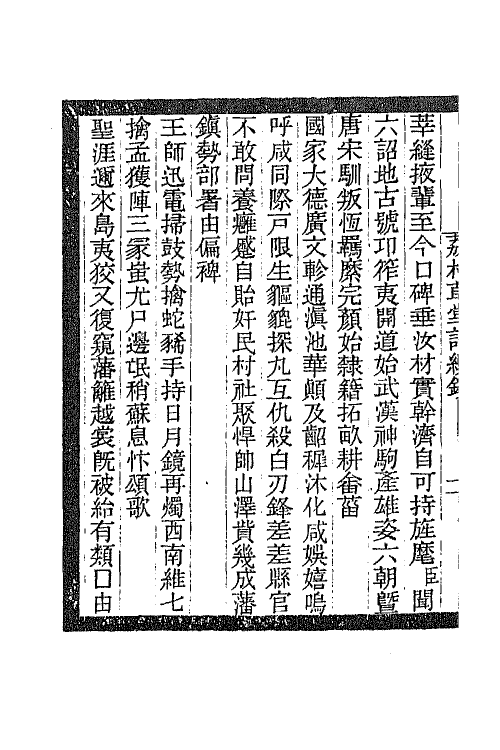 莘縫掖輩至今口碑垂汝材實幹濟自可持旌麾臣聞
六詔地古號卭筰夷開道始武漢神駒產雄姿六朝暨
唐宋馴叛恆羈縻完顏始隸籍拓畝耕畲菑
國家大德廣文軫通滇池華顛及齠穉沐化咸娛嬉嗚
呼咸同際戸限生貙貔探九互仇殺白刃鋒差差縣官
不敢問養癰慼自貽奸民村社聚悍帥山澤貲幾成藩
鎮勢部署由偏裨
王師迅電掃鼓勢擒蛇豨手持日月鏡再燭西南維七
擒孟獲陣三冢蚩尤尸邊氓稍蘇息忭頌歌
聖涯邇來島夷狡又復窺藩籬越裳旣被紿有類囗由